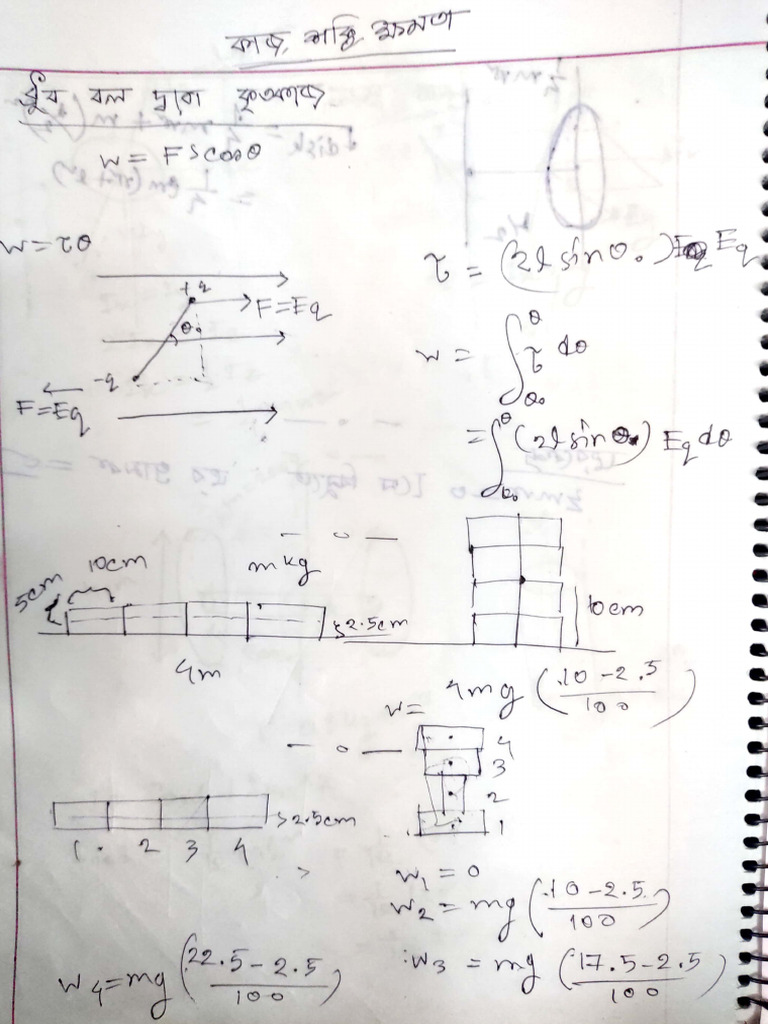 কাজ, শক্তি, ক্ষমতা
ধ্রুব বল দ্বারা কৃতকাজ
W = F s cosθ
W = τθ
+q
F = Eq
θ₀
-q
F = Eq
τ = (2l sinθ₀) Eq
W = ∫_{θ₀}^{θ} τ dθ
= ∫_{θ₀}^{θ} (2l sinθ) Eq dθ
— o —
10cm
m kg
5cm
2.5cm
4m
10cm
W = 4mg ( (10 - 2.5) / 100 )
— o —
4
3
2
1
2.5cm
1. 2 3 4
W₁ = 0
W₂ = mg ( (10 - 2.5) / 100 )
W₃ = mg ( (17.5 - 2.5) / 100 )
W₄ = mg ( (22.5 - 2.5) / 100 )